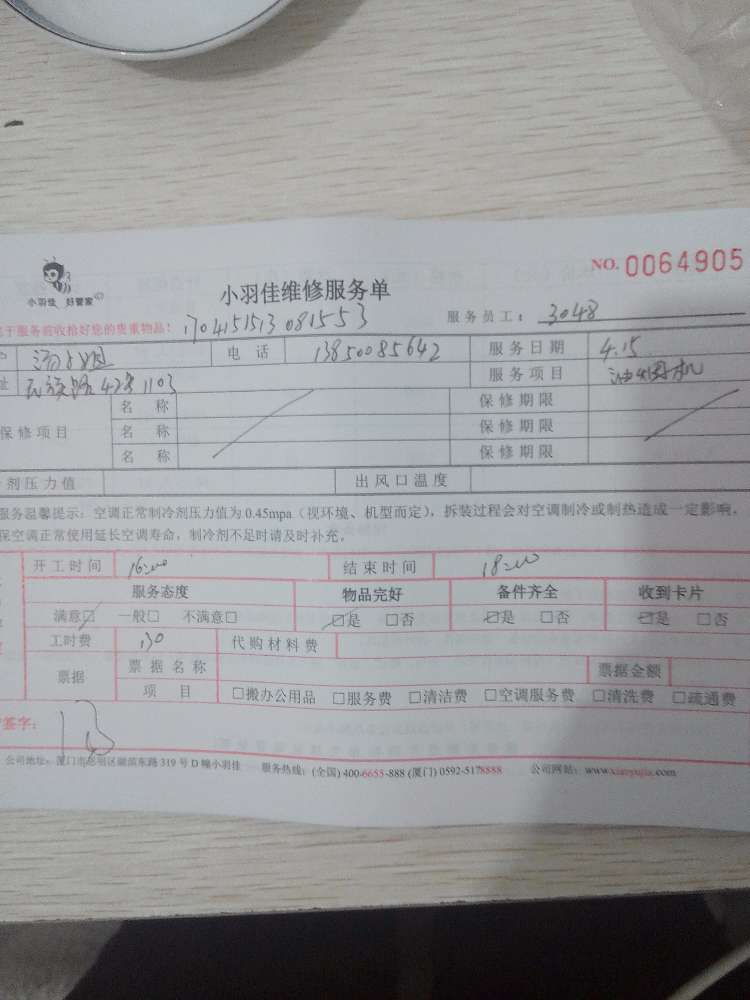 NO. 0064905
小羽佳 好管家
小羽佳维修服务单
于服务前收拾好您的贵重物品! 1704151513081553 服务员工: 3048
电话 13850085642 服务日期 4.15
址 民族路42号1103 服务项目 油烟机
保修项目 名称 保修期限
名称 保修期限
名称 保修期限
剂压力值 出风口温度
服务温馨提示: 空调正常制冷剂压力值为 0.45mpa (视环境、机型而定), 拆装过程会对空调制冷或制热造成一定影响,
保空调正常使用延长空调寿命, 制冷剂不足时请及时补充。
开工时间 16:00 结束时间 18:00
服务态度 物品完好 备件齐全 收到卡片
满意□ 一般□ 不满意□ □是 □否 □是 □否 □是 □否
工时费 130 代购材料费
票据 票据名称 票据金额
项目 □搬办公用品 □服务费 □清洁费 □空调服务费 □清洗费 □疏通费
签字:
公司地址: 厦门市思明区湖滨东路 319 号 D 幢小羽佳 服务热线: (全国) 400-6655-888 (厦门) 0592-5178888 公司网站: www.xiaoyujia.com